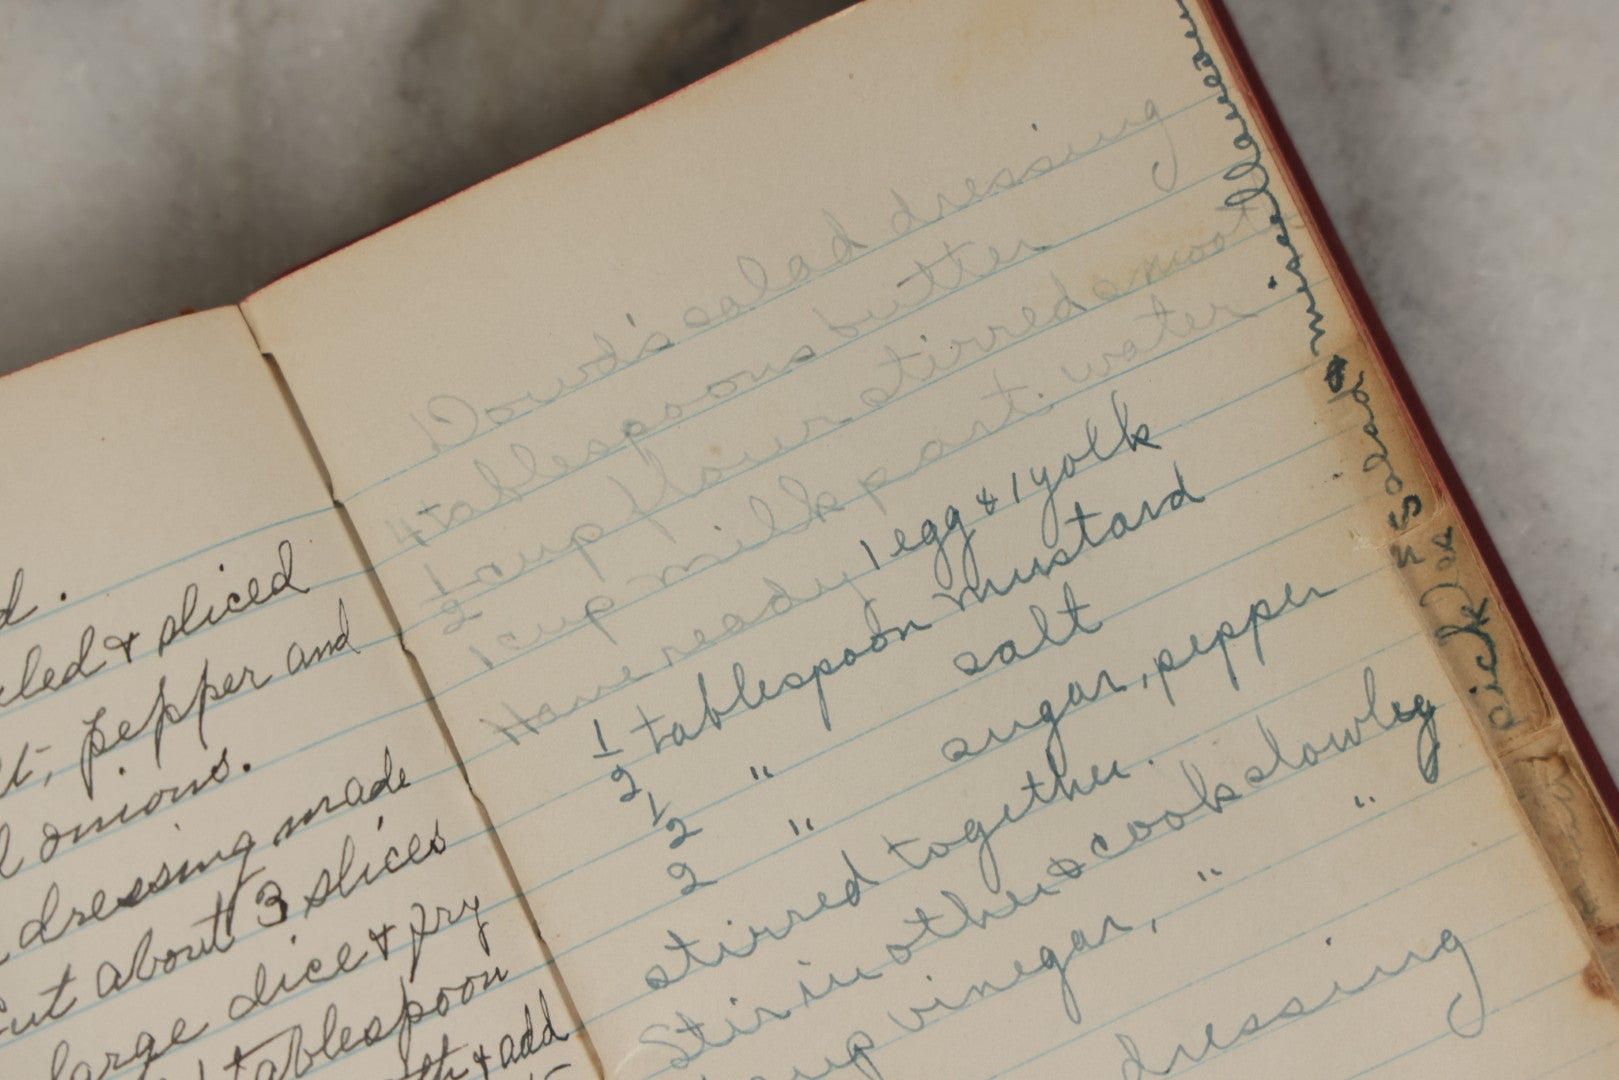 d.
led & sliced
t, pepper and
onions.
dressing made
cut about 3 slices
large dice & fry
tablespoon
th & add
Dowd's salad dressing
4 tablespoons butter
1/2 cup flour stirred smooth
1 cup milk part water
Have ready 1 egg & 1 yolk
1/2 tablespoon mustard
1/2 " salt
2 " sugar, pepper
stirred together.
Stir in other & cook slowley
cup vinegar, " "
dressing
Salad
Pickles